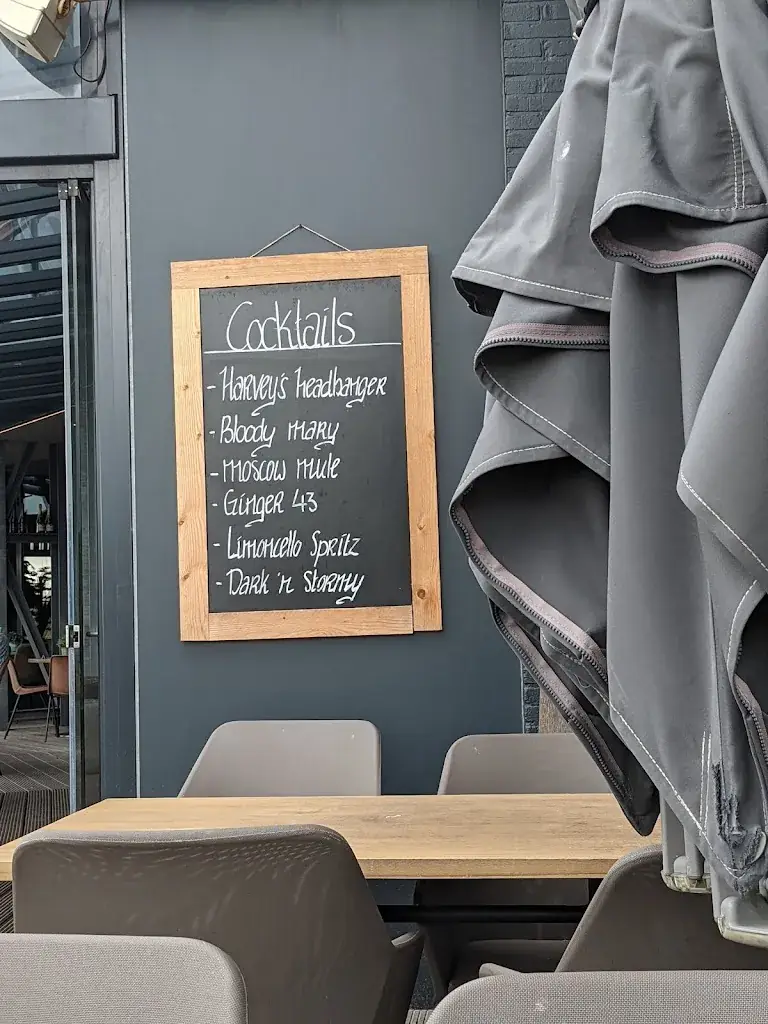 Cocktails
- Harvey's headbanger
- Bloody mary
- moscow mule
- Ginger 43
- Limoncello Spritz
- Dark 'n Stormy